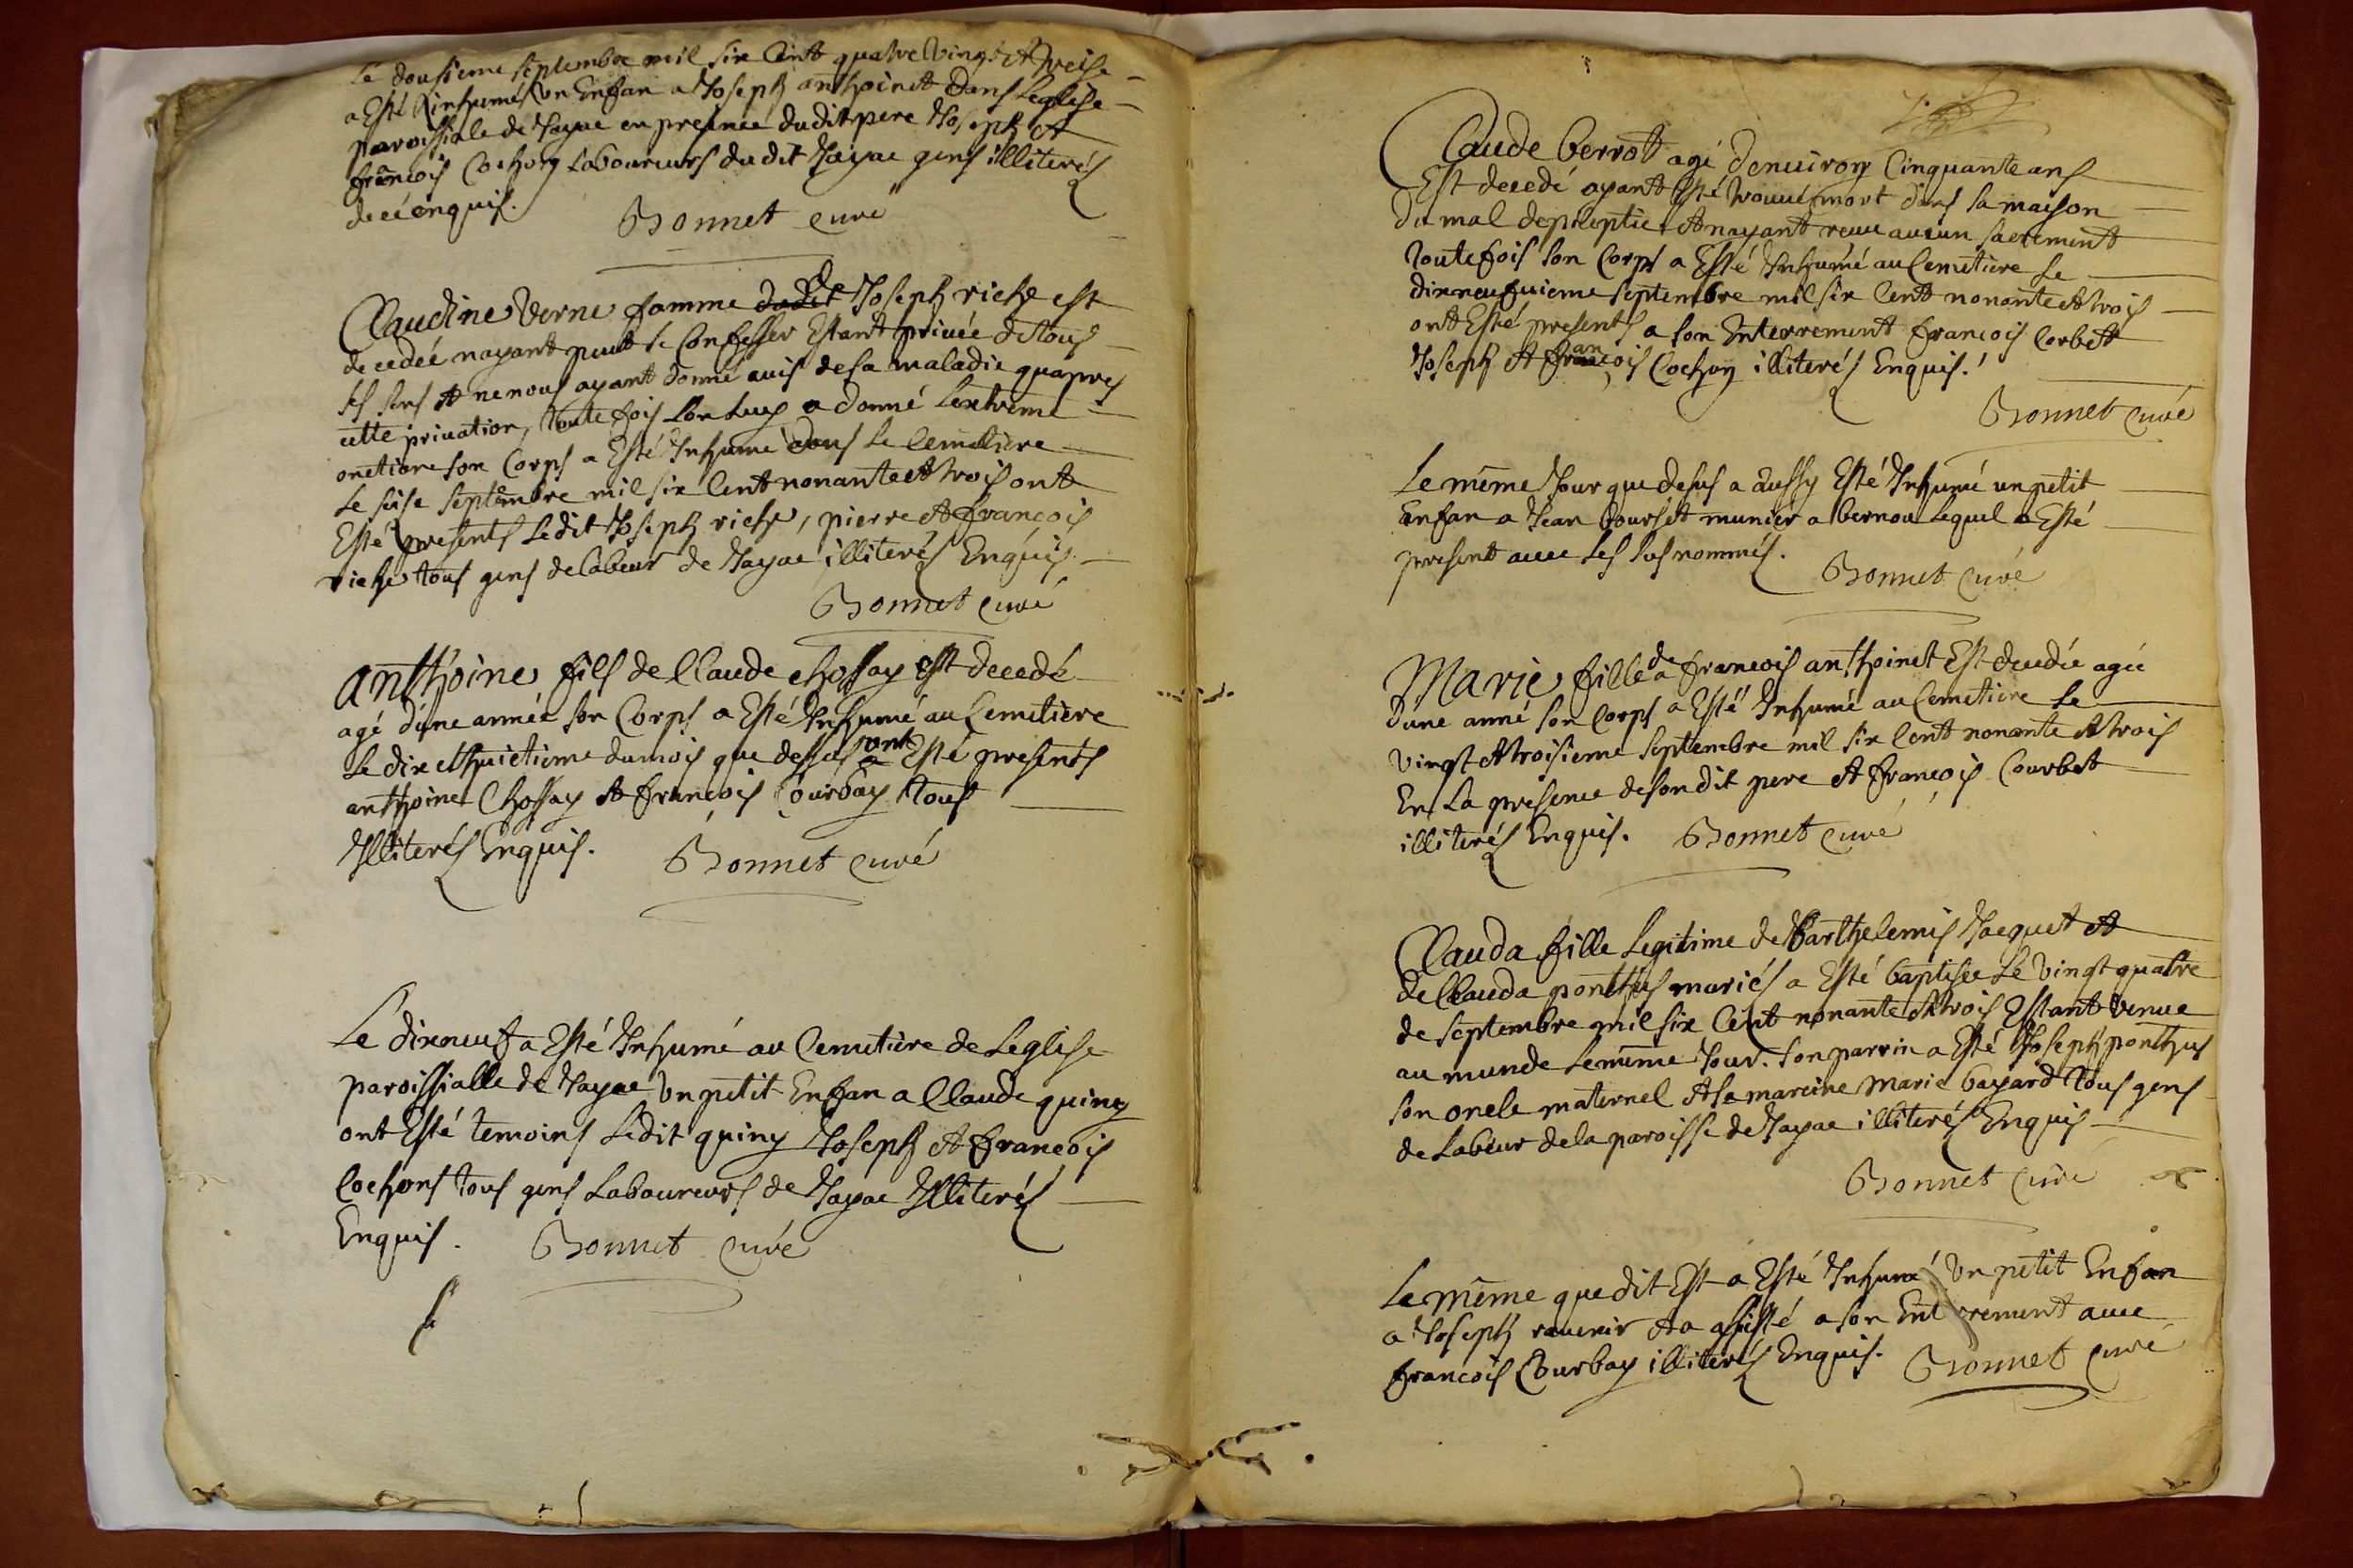 Le dousieme septembre mil six Cent quatre Vingt et treise
a Esté Rinhumés un Enfan a Joseph anthoinet dans Leglise
paroissiale de Jayac en presence dudit pere Joseph et
francois Cochon Laboureurs du dit Jayac gens illiterés
de ce enquis. Bonnet curé
Claudine Verne famme dudit de Joseph riche est
decedeé nayant peut se Confesser Estant privée de tous
ses sens et ne nous ayant donné avis de sa maladie quapres
cette privation, toute fois Lon Luy a donné Lextreme
onction son Corps a Esté Inhumé dans le Cemetiere
Le seise septembre mil six Cent nonante et trois ont
Esté presents Ledit Joseph riche, pierre et francois
riche tous gens de labeur de Jayac illiterés Enquis.
Bonnet Curé
anthoine fils de Claude chossay est decedé
agé d'une année son Corps a Esté Inhumé au Cemetiere
Le dix et huictieme du mois que dessus a ont Esté presents
anthoine Chossay et francois Courbay tous
Illiterés Enquis. Bonnet Curé
Le dixneuf a Esté Inhumé au Cemetiere de Leglise
paroissialle de Jayac Un petit Enfan a Claude quiny
ont Esté temoins Ledit quiny Joseph et francois
Cochons tous gens Laboureurs de Jayac Illiterés
Enquis. Bonnet Curé
Claude berrot agé denuiron Cinquante ans
Est decedé ayant Esté trouué mort dans sa maison
du mal depileptie et nayant receu aucun sacrement
toutefois son Corps a Esté Inhumé au Cemetiere Le
dixneufuieme septembre mil six Cent nonante et trois
ont Esté presents a son Interrement francois Corbet
Joseph et francois an Cochon illiterés Enquis.
Bonnet Curé
Le même Jour que desus a aussy Esté Inhumé un petit
Enfan a Jean boursét munier a bernou Lequel a Esté
present auec Les sus nommés. Bonnet Curé
Marie fille a de francois anthoinet Est decedée agée
d'une anné son Corps a Esté Inhumé au Cemetiere Le
Vingt et troisieme septembre mil six Cent nonante et trois
En La presence de son dit pere et francois Courbet
illiterés Enquis. Bonnet Curé
Clauda fille Legitime de Barthelemis Jacquet et
de Clauda ponthus mariés a Esté baptisée Le Vingt quatre
de septembre mil six Cent nonante et trois Estant Venue
au munde Le même Jour. son parrin a Esté Joseph ponthus
son oncle maternel et sa mareine Marie bayard tous gens
de Labeur de la paroisse de Jayac illiterés Enquis
Bonnet Curé
Le même que dit Est a Esté Inhumé Un petit Enfan
a Joseph rauenir et a assisté a son Enterrement auec
francois Courbay illiterés Enquis. Bonnet Curé